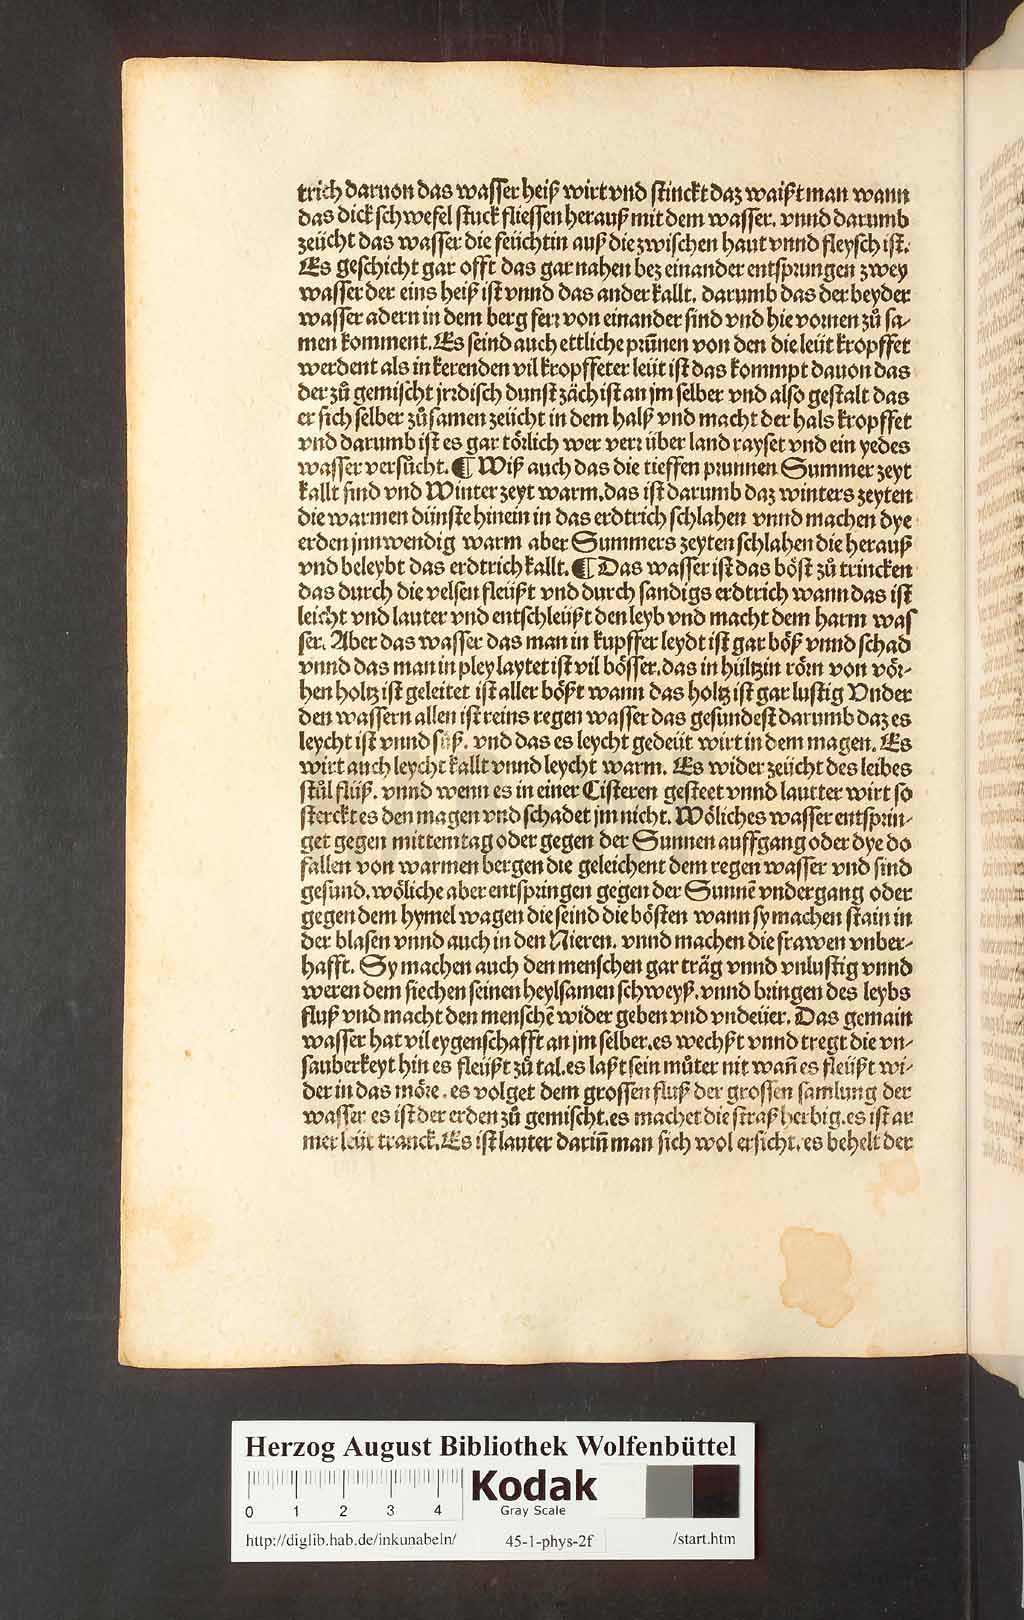 trich daruon das wasser heiß wirt vnd stinckt daz waißt man wann
das dick schwefel stuck fliessen herauß mit dem wasser. vnnd darumb
zeücht das wasser die feüchtin auß die zwischen haut vnnd fleysch ist.
Es geschicht gar offt das gar nahen bez einander entsprungen zwey
wasser der eins heiß ist vnnd das ander kallt. darumb das der beyder
wasser adern in dem berg ferꝛ von einander sind vnd hie vornen zů sa-
men komment. Es seind auch ettliche prūnen von den die leüt kropffet
werdent als in kerenden vil kropffeter leüt ist das kompt dauon das
der zů gemischt jrꝛdisch dunst zäch ist an jm selber vnd also gestalt das
er sich selber zů samen zeücht in dem halß vnd macht der hals kropffet
vnd darumb ist es gar törlich wer verꝛ über land rayset vnd ein yedes
wasser versůcht. ¶ Wiß auch das die tieffen prunnen Summer zeyt
kallt sind vnd Winter zeyt warm. das ist darumb daz winters zeyten
die warmen dünste hinein in das erdtrich schlahen vnnd machen dye
erden jnnwendig warm aber Summers zeyten schlahen die herauß
vnd beleybt das erdtrich kallt. ¶ Das wasser ist das böst zů trincken
das durch die velsen fleüßt vnd durch sandigs erdtrich wann das ist
leicht vnd lauter vnd entschleüßt den leyb vnd macht dem harm was
ser. Aber das wasser das man in kupffer leydt ist gar böß vnnd schad
vnnd das man in pley laytet ist vil bösser. das in hültzin rörn von vör-
hen holtz ist geleitet ist aller bößt wann das holtz ist gar lustig Vnder
den wassern allen ist reins regen wasser das gesundest darumb daz es
leycht ist vnnd süß. vnd das es leycht gedeüt wirt in dem magen. Es
wirt auch leycht kallt vnnd leycht warm. Es wider zeücht des leibes
stůl flüß. vnnd wenn es in einer Cisteren gesteet vnnd lautter wirt so
sterckt es den magen vnd schadet jm nicht. Wöliches wasser entsprin-
get gegen mittemtag oder gegen der Sunnen auffgang oder dye do
fallen von warmen bergen die geleichent dem regen wasser vnd sind
gesund. wöliche aber entspringen gegen der Sunnē vndergang oder
gegen dem hymel wagen die seind die bösten wann sy machen stain in
der blasen vnnd auch in den Nieren. vnnd machen die frawen vnber-
hafft. Sy machen auch den menschen gar träg vnnd vnlustig vnnd
weren dem siechen seinen heylsamen schweyß. vnnd bringen des leybs
fluß vnd macht den menschē wider geben vnd vndeüer. Das gemain
wasser hat vil eygenschafft an jm selber. es wechßt vnnd tregt die vn-
sauberkeyt hin es fleüßt zů tal. es laßt sein můter nit wañ es fleüßt wi-
der in das möre. es volget dem grossen fluß der grossen samlung der
wasser es ist der erden zů gemischt. es machet die straß herbig. es ist ar
mer leüt tranck. Es ist lauter dariñ man sich wol ersicht. es behelt der
Herzog August Bibliothek Wolfenbüttel
0 1 2 3 4
Kodak
Gray Scale
http://diglib.hab.de/inkunabeln/ 45-1-phys-2f /start.htm